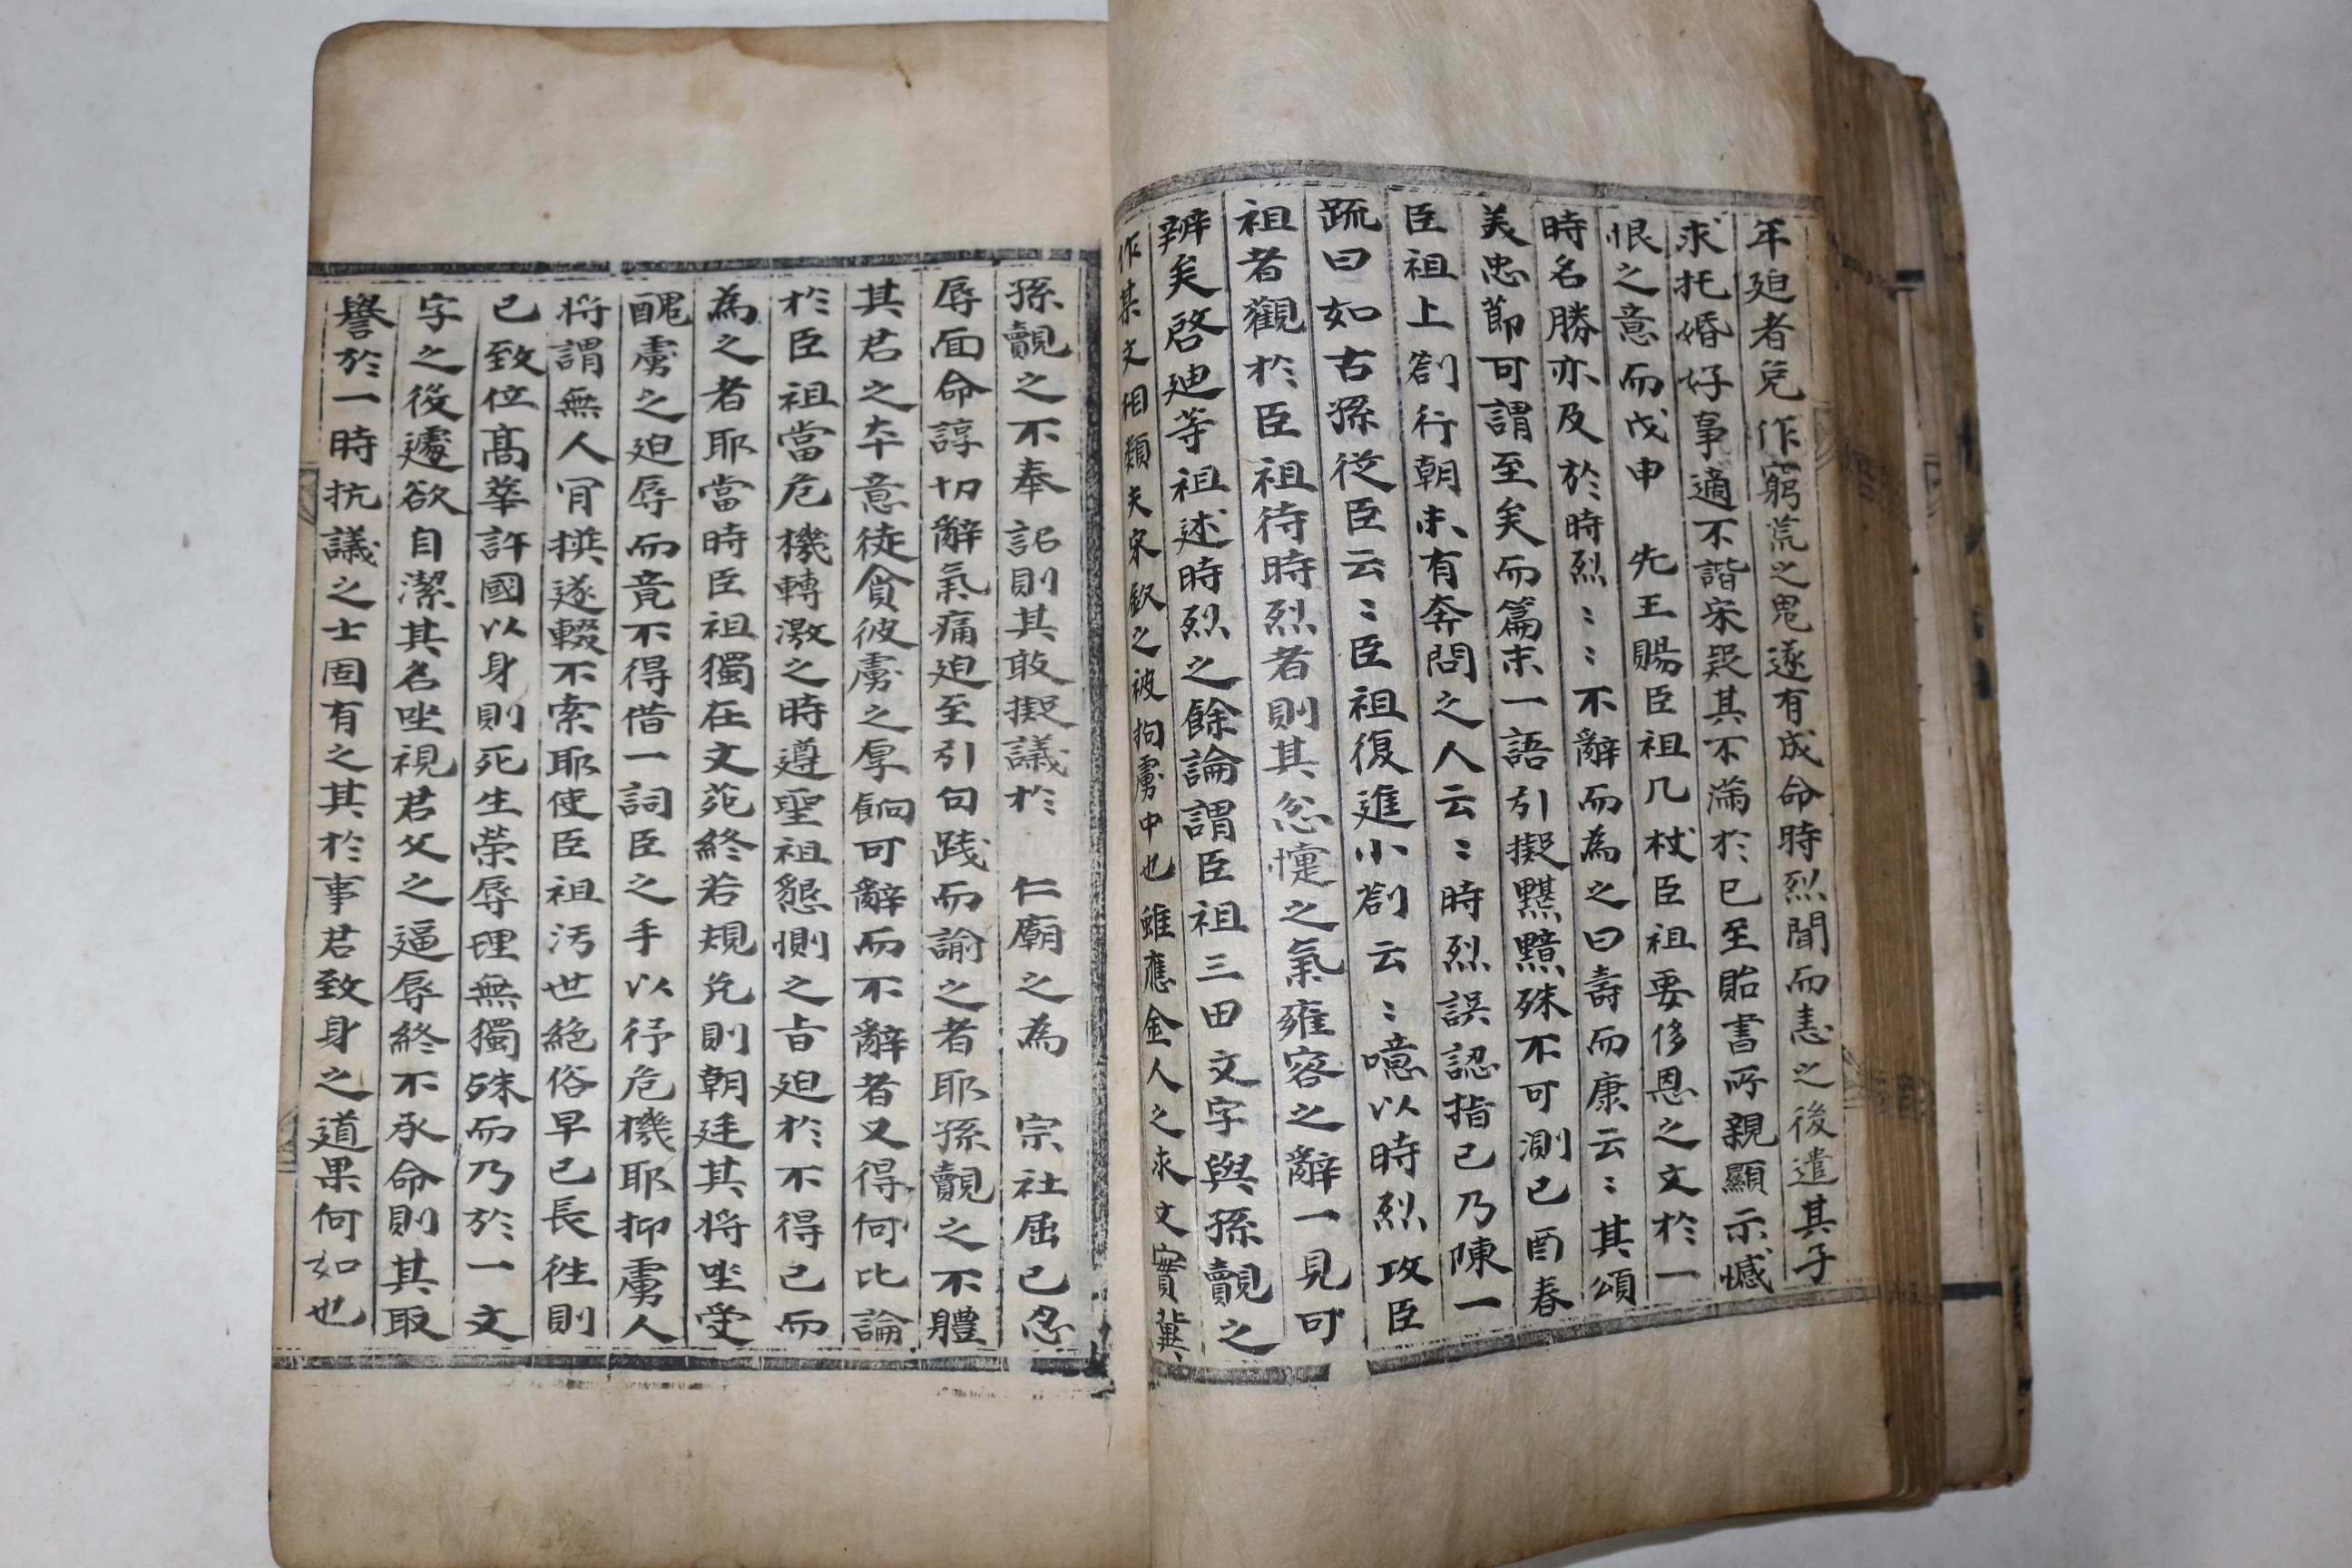 年廹者免作窮荒之鬼遂有成命時烈聞而恚之後遣其子
求托婚好事適不諧宋疑其不滿於已至貽書所親顯示憾
恨之意而戊申先王賜臣祖几杖臣祖要侈恩之文於一
時名勝亦及於時烈〻〻不辭而為之曰壽而康云〻其頌
美忠節可謂至矣而篇末一語引擬黮黯殊不可測已酉春
臣祖上劄行朝未有奔問之人云〻時烈誤認指已乃陳一
䟽曰如古孫從臣云〻臣祖復進小劄云〻噫以時烈攻臣
祖者觀於臣祖待時烈者則其忿懥之氣雍容之辭一見可
辨矣啓迪等祖述時烈之餘論謂臣祖三田文字與孫覿之
作某文相類夫宋欽之被拘虜中也雖應金人之求文實冀
孫覿之不奉詔則其敢擬議於仁廟之為宗社屈已忍
辱面命諄切辭氣痛廹至引句踐而諭之者耶孫覿之不體
其君之本意徒貪彼虜之厚餉可辭而不辭者又得何比論
於臣祖當危機轉激之時遵聖祖懇惻之旨廹於不得已而
為之者耶當時臣祖獨在文苑終若規免則朝廷其將坐受
醜虜之廹辱而竟不得借一詞臣之手以紓危機耶抑虜人
將謂無人肎撰遂輟不索耶使臣祖汚世絶俗早已長徃則
已致位髙華許國以身則死生榮辱理無獨殊而乃於一文
字之後遽欲自潔其名坐視君父之逼辱終不承命則其取
譽於一時抗議之士固有之其於事君致身之道果何如也